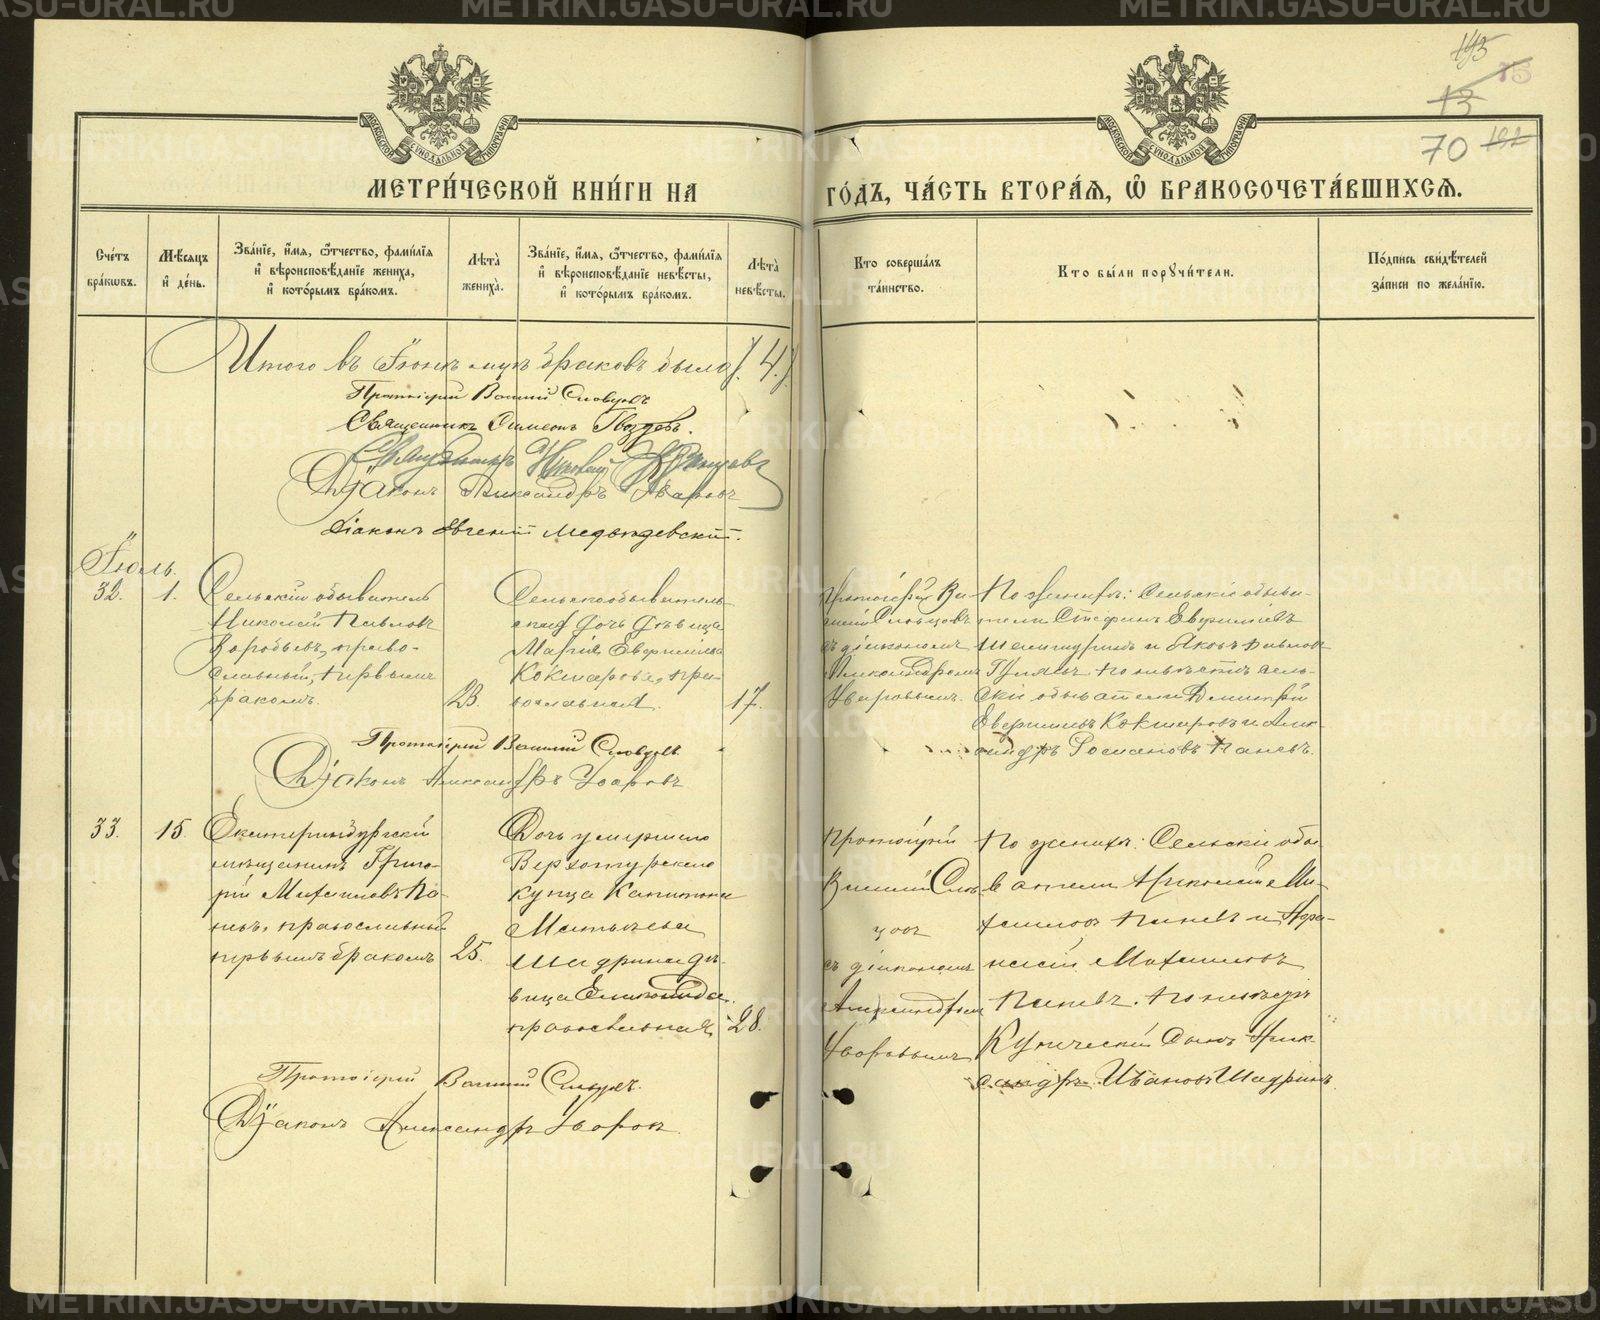 193
15
13
70 192
МОСКОВСКОЙ СѴНОДАЛЬНОЙ ТИПОГРАФІИ
МОСКОВСКОЙ СѴНОДАЛЬНОЙ ТИПОГРАФІИ
МЕТРИ́ЧЕСКОЙ КНИ́ГИ НА
ГО́ДЪ, ЧА́СТЬ ВТОРА́Я, Ѽ БРАКОСОЧЕТА́ВШИХСЯ.
Сче́тъ
бра́кѡвъ.
Мѣ́сяцъ
и҆ де́нь.
Зва́нїе, и҆́мя, ѻ҆́тчество, фами́лїя
и҆ вѣроисповѣ́данїе жениха̀,
и҆ кото́рымъ бра́комъ.
Лѣта̀
жениха̀.
Зва́нїе, и҆́мя, ѻ҆́тчество, фами́лїя
и҆ вѣроисповѣ́данїе невѣ́сты,
и҆ кото́рымъ бра́комъ.
Лѣта̀
невѣ́сты.
Кто соверша́лъ
та́инство.
Кто бы́ли порꙋчи́тели.
По́дпись свидѣ́телей
за́писи по жела́нїю.
Итого въ Іюнѣ м-цѣ браковъ было /. 4 ./
Протоіерей Василій Словцовъ
Священникъ Симеонъ Гвоздевъ.
Священникъ Николай
Діаконъ Александръ Уваровъ
Діаконъ Евгеній Медвѣдевскій.
Іюль.
32. 1.
Сельскій обыватель
Николай Павловъ
Воробьевъ, право-
славный, первымъ
бракомъ.
23.
Сельскаго обывателя
дочь дѣвица
Марія
Кокшарова, пра-
вославная.
17.
Протоіерей Ва-
силій Словцовъ
съ діакономъ
Александромъ
Уваровымъ.
По женихѣ: Сельскіе обыва-
тели Стефанъ
и Яковъ Павловъ
по невѣстѣ сель-
скіе обыватели Дмитрій
Кокшаровъ и Алек-
сандръ Паневъ.
Протоіерей Василій Словцовъ.
Діаконъ Александръ Уваровъ
33. 15.
Екатеринбургскій
мѣщанинъ Григо-
рій Михаиловъ Па-
невъ, православный
первымъ бракомъ
25.
Дочь умершаго
Верхотурскаго
купца Капитона
Матвѣева
Шадрина дѣ-
вица
православная,
28.
Протоіерей
Василій Слов-
цовъ
съ діакономъ
Александромъ
Уваровымъ
По женихѣ: Сельскіе обы-
ватели Николай Ми-
хаиловъ Паневъ и Афа-
насій Михаиловъ
Паневъ. По невѣстѣ
Купеческій сынъ Алек-
сандръ Ивановъ Шадринъ.
Протоіерей Василій Словцовъ.
Діаконъ Александръ Уваровъ.
METRIKI.GASO-URAL.RU